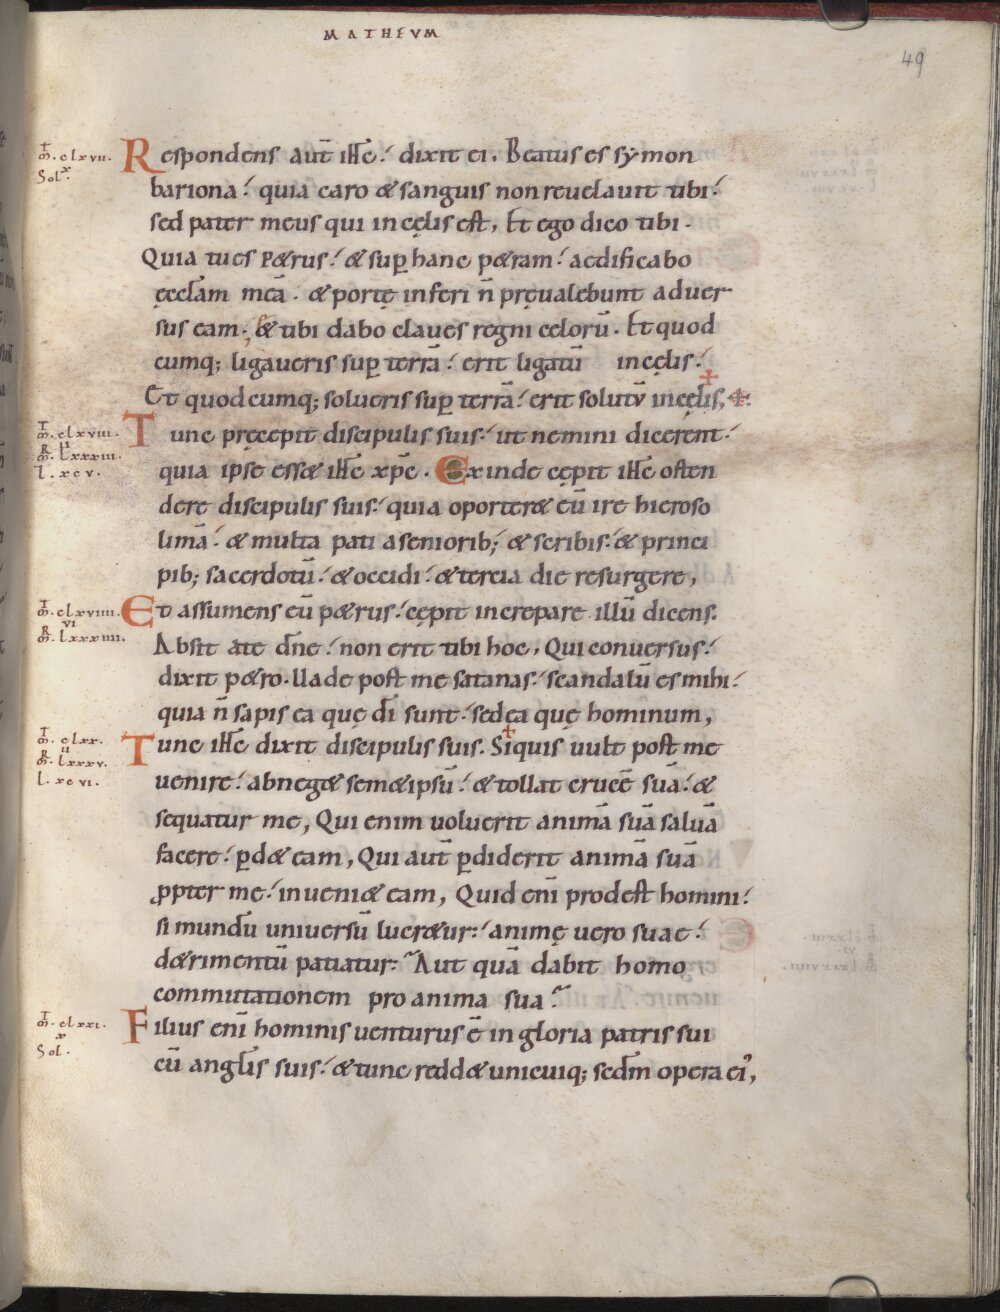 MATHEVM
49
m̄. clxvii.
Sol. x
Respondens aut̄ ih̄c ⁝ dixit ei . Beatus es symon
bariona ⁝ quia caro & sanguis non reuelauit tibi ⁝
sed pater meus qui in cęlis est , Et ego dico tibi .
Quia tu es P&rus ⁝ & sup̱ hanc p&ram ⁝ aedificabo
ęccl̄am meā . & portę inferi n̄ pręualebunt aduer
sus eam . & tibi dabo claues regni celorū . Et quod
cumq; ligaueris sup̱ terrā ⁝ erit ligatū in cęlis ⁝
Et quodcumq; solueris sup̱ terrā ⁝ erit solutū in cęlis ,
m̄. clxviii.
ii
R̄. lxxxiii.
l. xcv.
Tunc pręcepit discipulis suis ⁝ ut nemini dicerent ⁝
quia ipse ess& ih̄c xp̄c . Exinde cępit ih̄c osten
dere discipulis suis ⁝ quia oporter& eū ire hieroso
limā ⁝ & multa pati a seniorib; & scribis ⁝ & princi
pib; sacerdotū ⁝ & occidi ⁝ & tercia die resurgere ,
m̄. clxviiii.
vi
m̄. lxxxiiii.
Et assumens eū p&rus ⁝ cępit increpare illū dicens .
Absit a te dn̄e ⁝ non erit tibi hoc , Qui conuersus ⁝
dixit p&ro . Uade post me satanas ⁝ scandalū es mihi ⁝
quia n̄ sapis ea quę dī sunt ⁝ sed ea quę hominum ,
m̄. clxx.
ii
m̄. lxxxv.
l. xcvi.
Tunc ih̄c dixit discipulis suis . Siquis uult post me
uenire ⁝ abneg& sem&ipsū ⁝ & tollat crucē suā ⁝ &
sequatur me , Qui enim uoluerit animā suā saluā
facere ⁝ p̱d& eam , Qui aut̄ p̱diderit animā suā
ꝓpter me ⁝ inueni& eam , Quid enī prodest homini ⁝
si mundū uniuersū lucr&ur ⁝ animę uero suae ⁝
d&rimentū patiatur ⁝ Aut quā dabit homo
commutationem pro anima sua ⁝
m̄. clxxi.
x
Sol.
Filius enī hominis uenturus ē in gloria patris sui
cū angl̄is suis ⁝ & tunc redd& unicuiq; sedm̄ opera ei᾿ ,